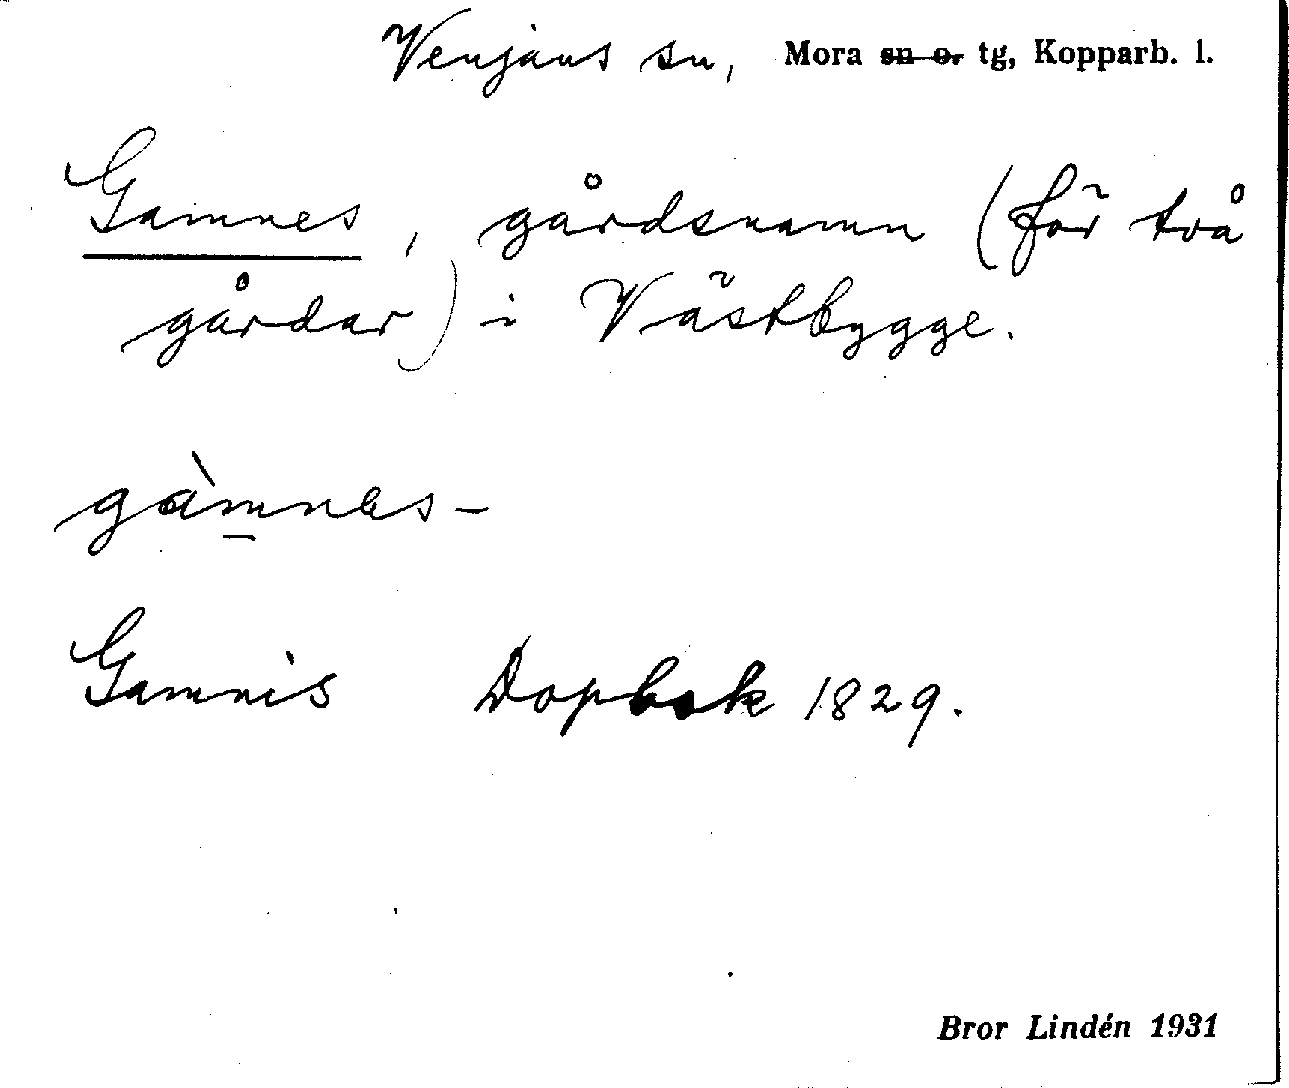 Venjans sn, Mora sn o. tg, Kopparb. l.
Gamnes, gårdsnamn (för två
gårdar) i Västbygge.
gàm̲nes-
Gamnis Dopbok 1829.
Bror Lindén 1931